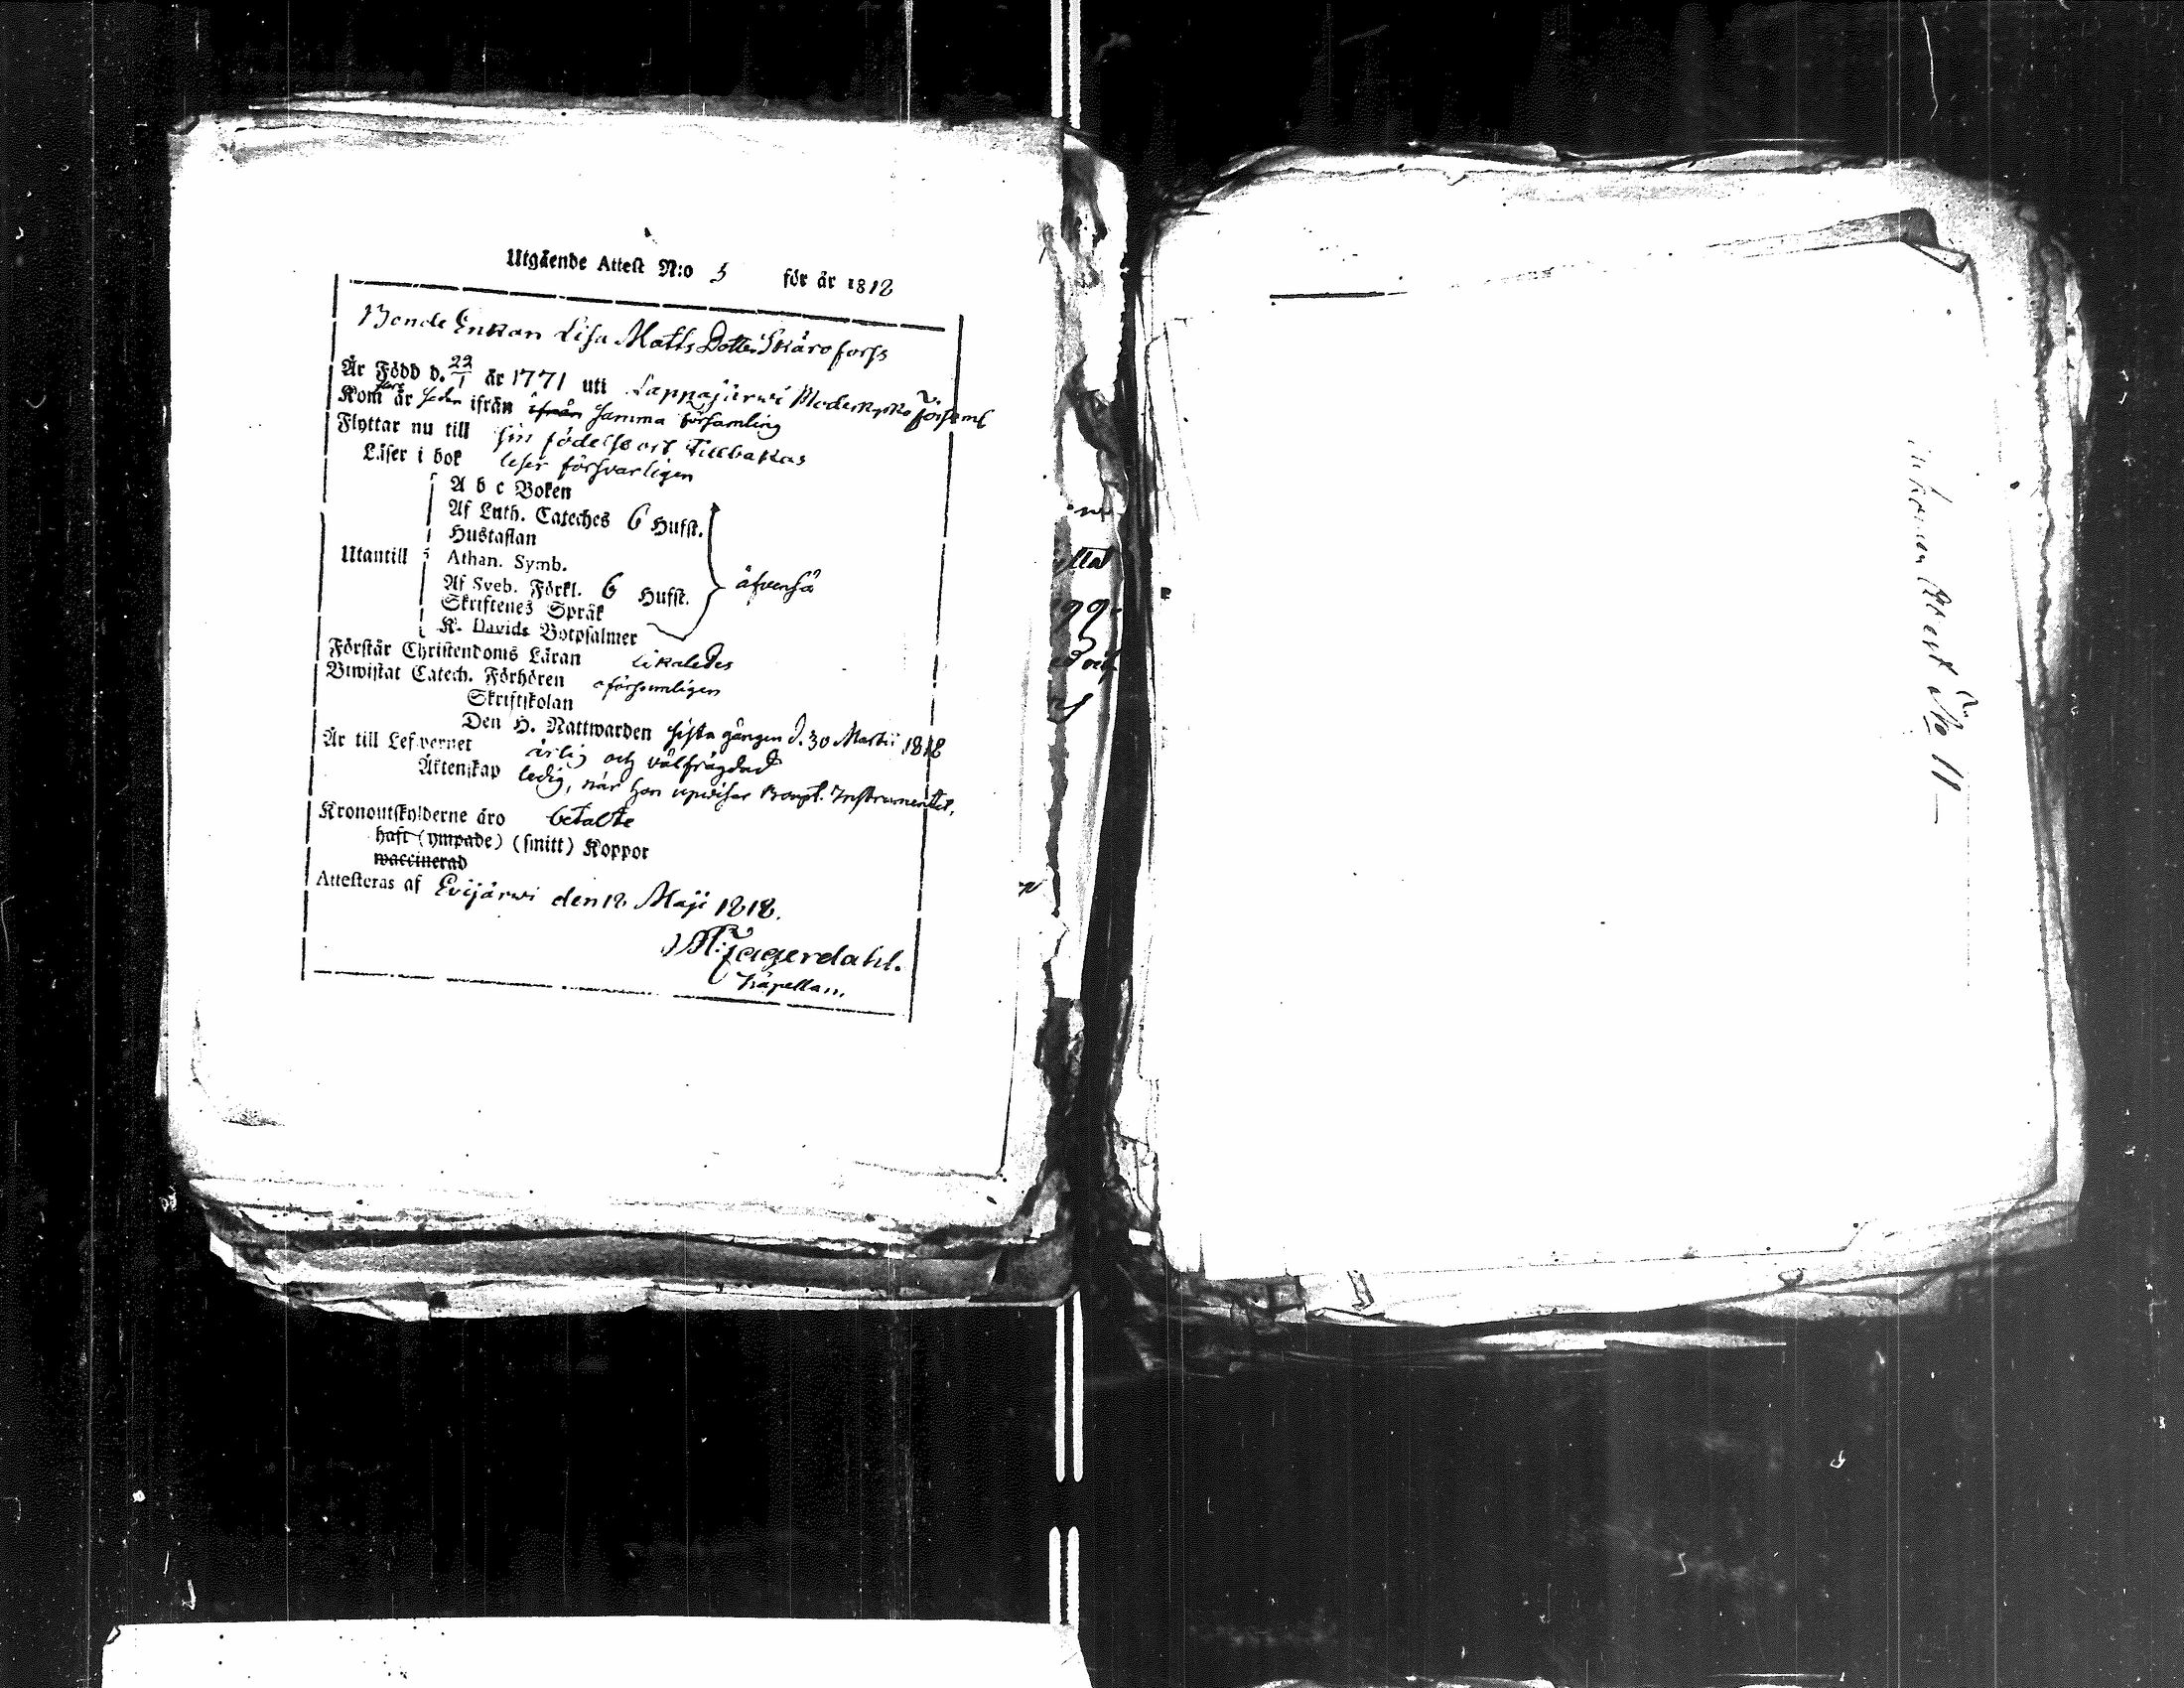 Utgående Attest N:o 5 för år 1818
Bonde Enkan Lisa Matts Dotter Skäroforss
Är Född d. 22/1 år 1771 uti Lappajärwi Moderkyrko församl
Kom år sedan ifrån ifrån samma församling
Flyttar nu till sin födelse ort tillbakas
Läser i bok leser försvarligen
A b c Boken
Af Luth. Cateches 6 Hufst.
Hustaflan
Utantill Athan. Symb. äfvenså
Af Sveb. Förkl. 6 Hufst.
Skriftenes Språk
K. Davids Botpsalmer
Förstår Christendoms Läran likaledes
Biwistat Catech. Förhören oförsumligen
Skriftskolan
Den H. Nattwarden sista gången d. 30 Martii 1818
Är till Lefwernet ärlig och välfrägdad
Äktenskap ledig, när hon upwisar Instrumentet.
Kronoutskylderne äro betalte
haft (ympade) (smitt) Koppor
waccinerad
Attesteras af Evijärwi den 18 Maji 1818.
Fagerdahl.
Kapellan.
inkommen Attest No 11